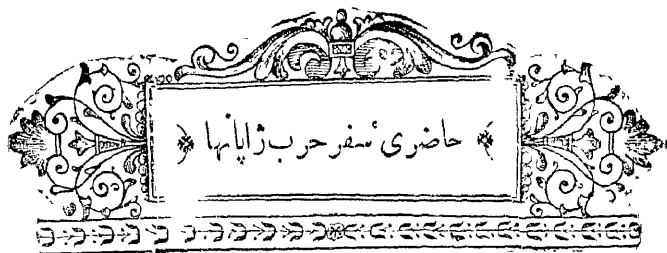 ﴿ حاضریٔ سفر حرب ژاپانها ﴾